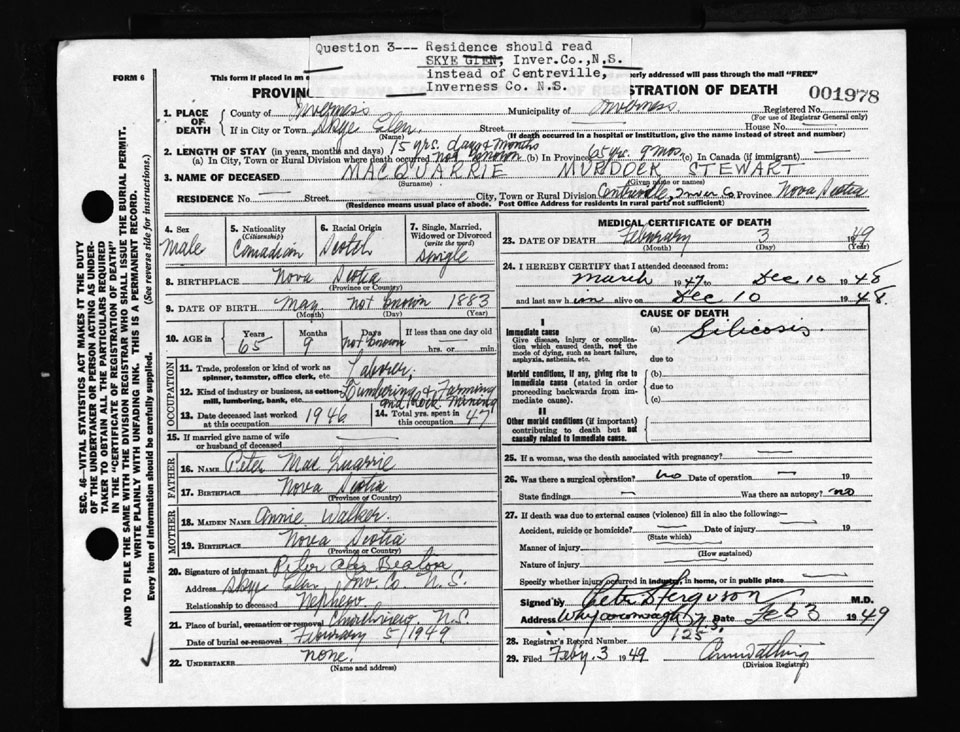 Question 3--- Residence should read
SKYE GLEN, Inver.Co.,N.S.
instead of Centreville,
Inverness Co. N.S.
FORM 6
This form if placed in an e
erly addressed will pass through the mail "FREE"
PROVINC
STRATION OF DEATH
001978
1. PLACE OF DEATH
County of Inverness
Municipality of Inverness
Registered No.
(For use of Registrar General only)
If in City or Town Skye Glen.
(Name)
Street —
House No. —
(If death occurred in a hospital or institution, give the name instead of street and number)
2. LENGTH OF STAY (in years, months and days)
15 yrs. days & months
(a) In City, Town or Rural Division where death occurred not known (b) In Province 65 yrs. 9 mos. (c) In Canada (if immigrant) —
3. NAME OF DECEASED MACQUARRIE MURDOCK STEWART
(Surname) (Given name or names)
RESIDENCE No. — Street — City, Town or Rural Division Centreville, Inver Co Province Nova Scotia
(Residence means usual place of abode. Post Office Address for residents in rural parts not sufficient)
4. Sex
Male
5. Nationality
(Citizenship)
Canadian
6. Racial Origin
Scotch
7. Single, Married, Widowed or Divorced
(write the word)
Single
8. BIRTHPLACE Nova Scotia
(Province or Country)
9. DATE OF BIRTH May not known 1883
(Month) (Day) (Year)
10. AGE in
Years Months Days If less than one day old
65 9 not known hrs. or min.
OCCUPATION
11. Trade, profession or kind of work as
spinner, teamster, office clerk, etc.
Laborer.
12. Kind of industry or business, as cotton
mill, lumbering, bank, etc.
Lumbering & Farming
and Rock Mining
13. Date deceased last worked
at this occupation 1946
14. Total yrs. spent in
this occupation 47
15. If married give name of wife
or husband of deceased —
FATHER
16. NAME Peter MacQuarrie
17. BIRTHPLACE Nova Scotia
(Province or Country)
MOTHER
18. MAIDEN NAME Annie Walker.
19. BIRTHPLACE Nova Scotia
(Province or Country)
20. Signature of informant Peter Alex Beaton
Address Skye Glen, Inv Co N.S.
Relationship to deceased Nephew
21. Place of burial, cremation or removal Churchview N.S.
Date of burial or removal February 5/1949
22. UNDERTAKER none.
(Name and address)
MEDICAL CERTIFICATE OF DEATH
23. DATE OF DEATH February 3 1949
(Month) (Day) (Year)
24. I HEREBY CERTIFY that I attended deceased from:
March 1947 to Dec 10 1948
and last saw him alive on Dec 10 1948.
CAUSE OF DEATH
I
Immediate cause
Give disease, injury or complication which caused death, not the mode of dying, such as heart failure, asphyxia, asthenia, etc.
(a) Silicosis.
due to
Morbid conditions, if any, giving rise to immediate cause (stated in order proceeding backwards from immediate cause).
(b)
due to
(c)
II
Other morbid conditions (if important) contributing to death but not causally related to immediate cause.
25. If a woman, was the death associated with pregnancy? —
26. Was there a surgical operation? no Date of operation — 19
State findings — Was there an autopsy? no
27. If death was due to external causes (violence) fill in also the following:—
Accident, suicide or homicide? — Date of injury — 19
(State which)
Manner of injury —
(How sustained)
Nature of injury —
Specify whether injury occurred in industry, in home, or in public place —
Signed by Peter S Ferguson M.D.
Address Whycocomagh N.S. Date Feb 3 1949
28. Registrar's Record Number 125
29. Filed Feby. 3 1949
(Division Registrar)
SEC. 46—VITAL STATISTICS ACT MAKES IT THE DUTY
OF THE UNDERTAKER OR PERSON ACTING AS UNDER-
TAKER TO OBTAIN ALL THE PARTICULARS REQUIRED
IN THE "CERTIFICATE OF REGISTRATION OF DEATH"
AND TO FILE THE SAME WITH THE DIVISION REGISTRAR WHO SHALL ISSUE THE BURIAL PERMIT.
WRITE PLAINLY WITH UNFADING INK. THIS IS A PERMANENT RECORD.
Every item of information should be carefully supplied. (See reverse side for instructions.)